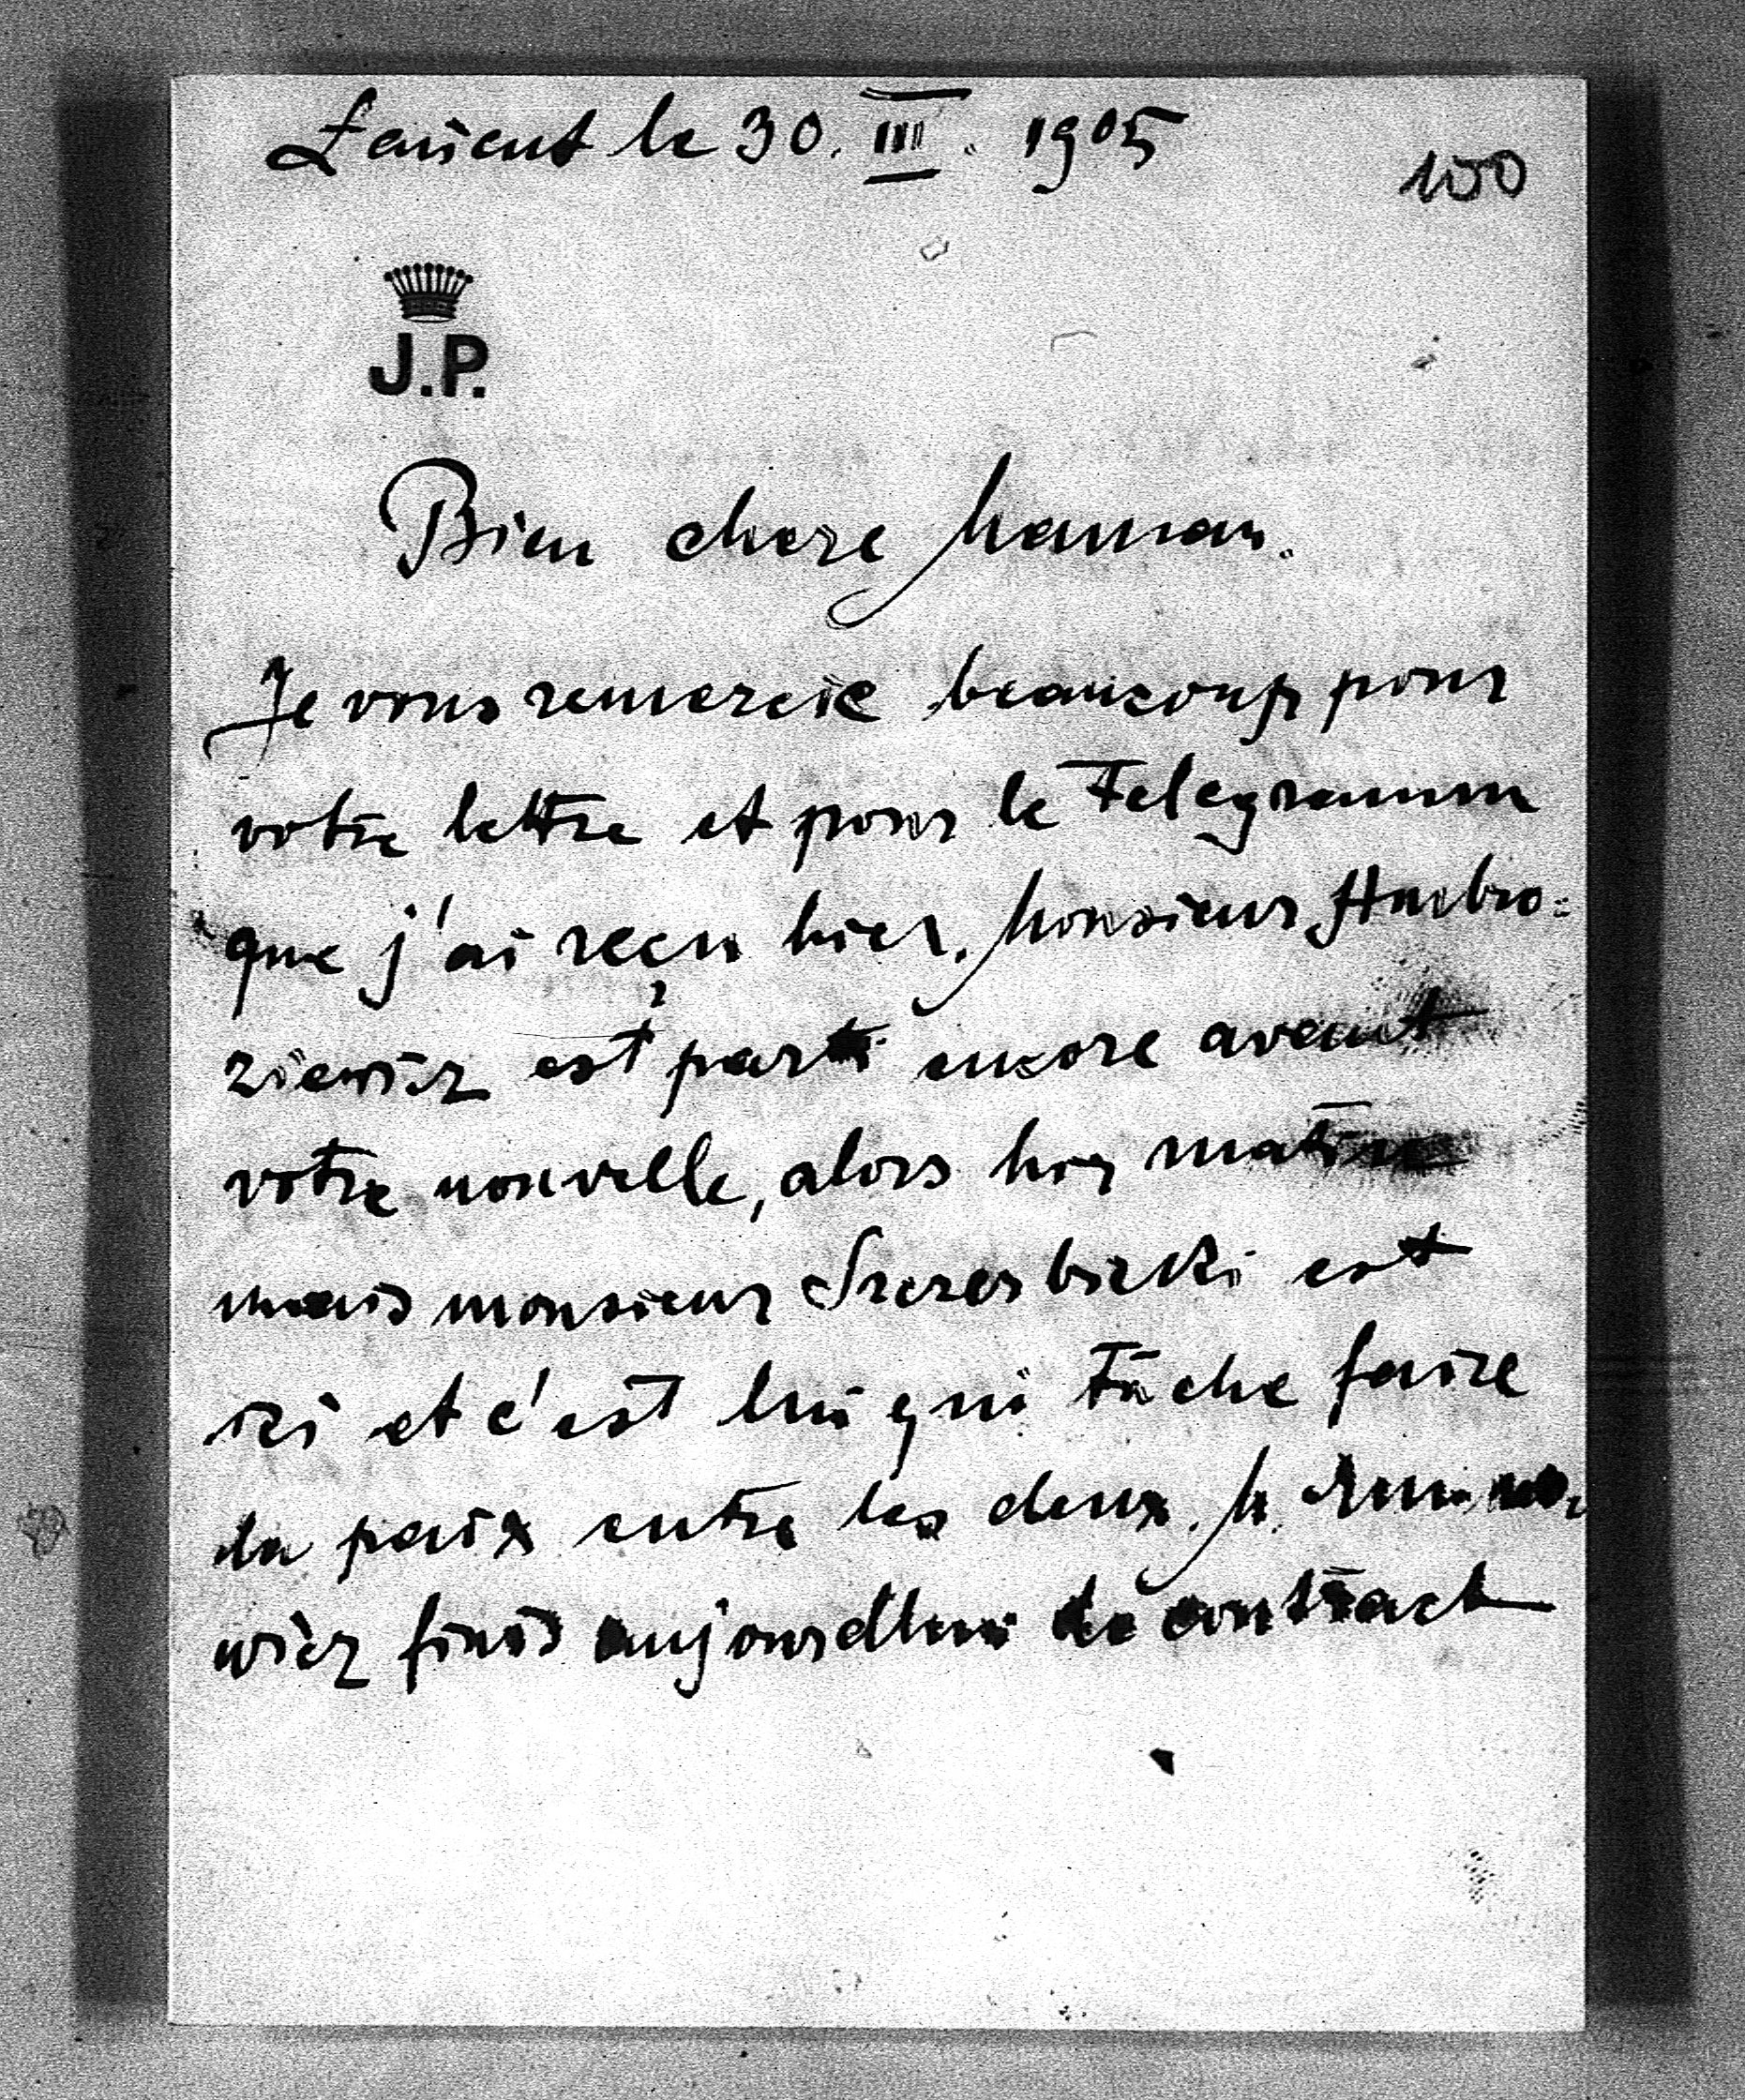 Łańcut le 30. III. 1905
150
J.P.
Bien chere Maman.
Je vous remercie beaucoup pour
votre lettre et pour le Telegramm
que j'ai reçu hier. Monsieur Ambro=
ziewicz est parti encore avant
votre nouvelle, alors hier matin
mais monsieur Szczerbicki est
ici et c'est lui qui tâche faire
la paix entre les deux. M.
wicz finis aujourdhui le contract